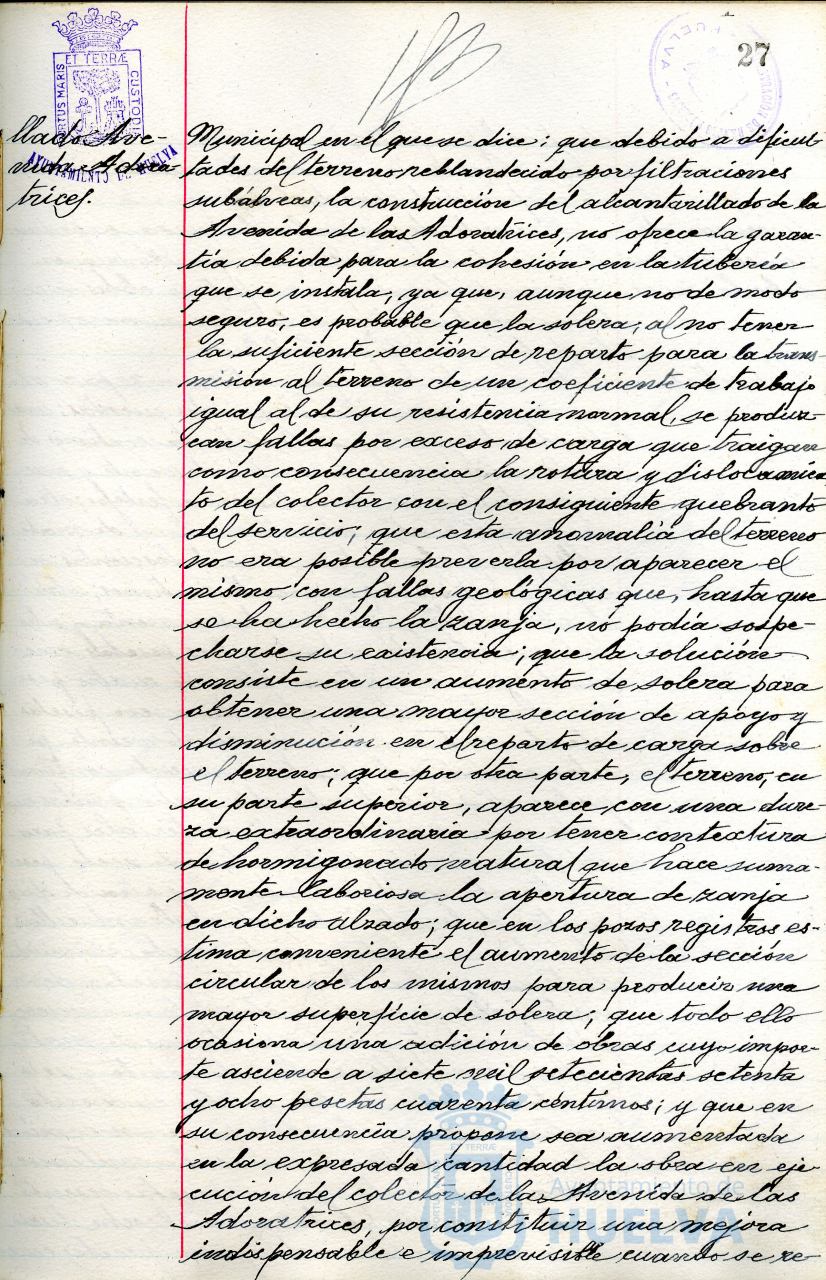 27
ET TERRÆ
PORTUS MARIS
CUSTODIA
AYUNTAMIENTO DE HUELVA
HUELVA
llado Ave-
nida Adora-
trices.
Municipal en el que se dice: que debido a dificul-
tades del terreno reblandecido por filtraciones
subálveas, la construcción del alcantarillado de la
Avenida de las Adoratrices, no ofrece la garan-
tía debida para la cohesión en la tubería
que se instala, ya que, aunque no de modo
seguro, es probable que la solera, al no tener
la suficiente sección de reparto para la trans-
misión al terreno de un coeficiente de trabajo
igual al de su resistencia normal, se produz-
can fallas por exceso de carga que traigan
como consecuencia la rotura y dislocamien-
to del colector con el consiguiente quebranto
del servicio; que esta anomalía del terreno
no era posible preverla por aparecer el
mismo con fallas geológicas que, hasta que
se ha hecho la zanja, no podía sospe-
charse su existencia; que la solución
consiste en un aumento de solera para
obtener una mayor sección de apoyo y
disminución en el reparto de carga sobre
el terreno; que por otra parte, el terreno, en
su parte superior, aparece con una dure-
za extraordinaria por tener contextura
de hormigonado natural que hace suma-
mente laboriosa la apertura de zanja
en dicho alzado; que en los pozos registros es-
tima conveniente el aumento de la sección
circular de los mismos para producir una
mayor superficie de solera; que todo ello
ocasiona una adición de obras cuyo impor-
te asciende a siete mil setecientas setenta
y ocho pesetas cuarenta céntimos; y que en
su consecuencia propone sea aumentada
en la expresada cantidad la obra en eje-
cución del colector de la Avenida de las
Adoratrices, por constituir una mejora
indispensable e imprevisible cuando se re-
Ayuntamiento de
HUELVA